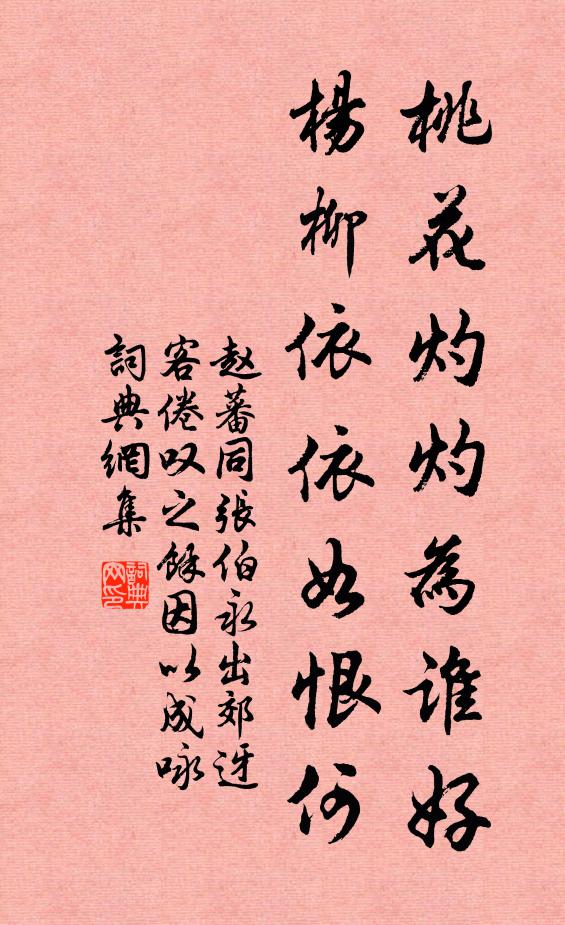 桃花灼灼為誰好
楊柳依依如恨何
赵蕃同張伯永出郊迓
客倦叹之餘因以成咏
詞典網集
詞典网印